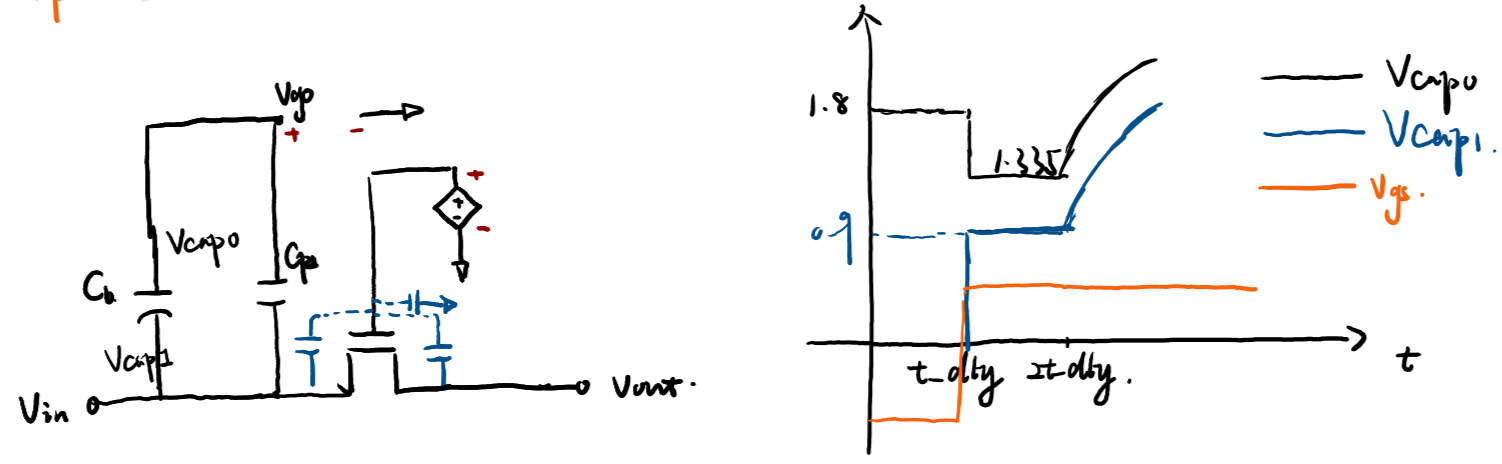 Vgp
+
-
+
+
-
-
Vcap0
Cb
Vcap1
Vin
Vout.
1.8
1.335
0.9
t_dly 2t_dly.
t
Vcap0
Vcap1.
Vgs.